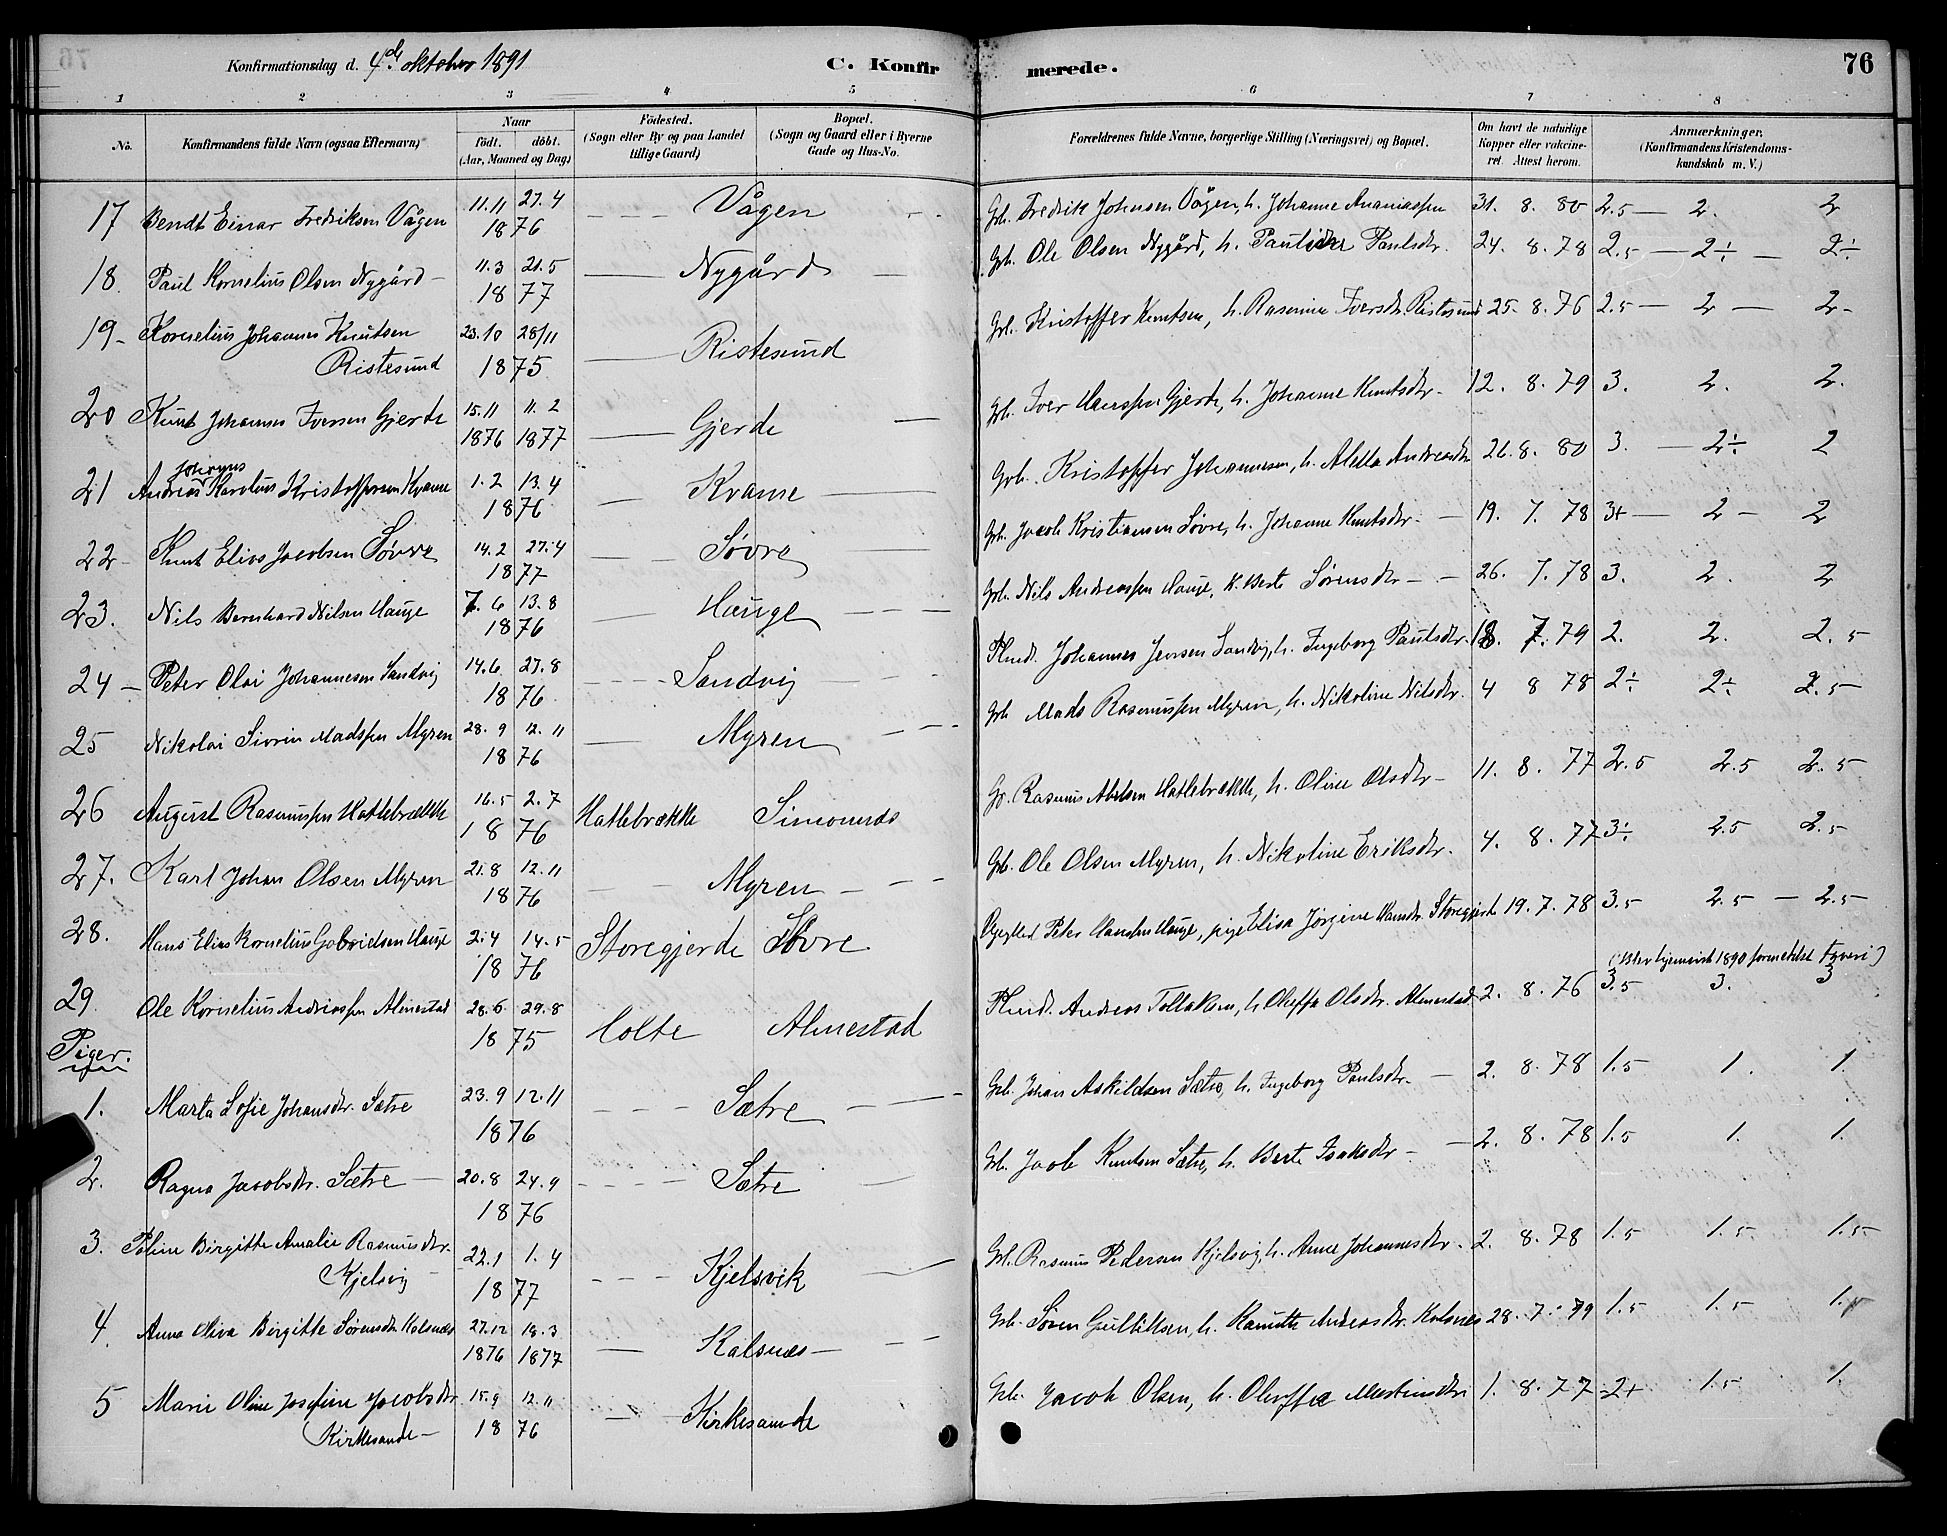 Konfirmationsdag d. 4de oktober 1891 C. Konfirmerede. 76
1 2 3 4 5 6 7 8
No. Konfirmandens fulde Navn (ogsaa Efternavn) Naar født. døbt. (Aar, Maaned og Dag) Fødested. (Sogn eller By og paa Landet tillige Gaard) Bopæl. (Sogn og Gaard eller i Byerne Gade og Hus-No.
Forældrenes fulde Navne, borgerlige Stilling (Næringsvei) og Bopæl. Om havt de naturlige Kopper eller vakcineret. Attest herom. Anmærkninger. (Konfirmandens Kristendomskundskab m. V.)
17 Bendt Einar Fredriksen Vågen 11.11 27.4 1876 Vågen Gb. Fredrik Johnsen Vågen, h. Johanne Ananiaspn 31. 8. 80 2.5 — 2. 2
18. Paul Kornelius Olsen Nygård — 11.3 21.5 1877 — Nygård — Gb. Ole Olsen Nygård, h. Pauline Paulsdtr. 24. 8. 78 2.5 — 2÷ — 2÷
19 - Kornelius Johannes Knutsen
Ristesund 23.10 28/11 1875 — Ristesund Gb. Kristoffer Knutsen, h. Rasmine Iversdtr. Ristesund 25. 8. 76 2.5 — 2 — 2-
20 Knut Johannes Iversen Gjerde 15.11 1876 11.2 1877 — Gjerde — Gb. Iver Hanspn Gjerde, h. Johanne Knutsdtr. 12. 8. 79 3. 2. 2.
21 Andreas Johannes Karolius Kristoffersen Kvame 1.2 13.4 1876 — Kvame — Gb. Kristoffer Johannesen, h. Aletta Andreasdtr 26. 8. 80 3. — 2÷ 2
22 - Knut Elias Jacobsen Søvre 14.2 27.4 1877 — Søvre — Gb. Jacob Kristiansen Søvre, h. Johanne Knutsdtr. — 19. 7. 78 3+ — 2 — 2
23. Nils Bernhard Nilsen Hauge 7.6 13.8 1876 — Hauge — Gb. Nils Andreaspn Hauge, h. Berte Sørensdtr — 26. 7. 78 3. 2. 2
24 — Peter Olai Johannesen Sandvig 14.6 27.8 1876 Sandvig Hmd. Johannes Jensen Sandvig, h. Ingeborg Paulsdtr. 18. 7. 79 2. 2. 2.5
25 Nikolai Sivrin Madspn Myren 28.9 12.11 1876 — Myren Gb Mads Rasmuspn Myren, h. Nikoline Nilsdtr. 4 8 78 2÷ 2÷ 2.5
26 August Rasmuspn Hatlebrække 16.5 2.7 1876 Hatlebrække Simonnæs Gb. Rasmus Abelsen Hatlebrække, h. Oline Olsdtr — 11. 8. 77 2.5 2.5 2.5
27. Karl Johan Olsen Myren 21.8 12.11 1876 Myren Gb. Ole Olsen Myren, h. Nikoline Eriksdtr. 4. 8. 77 3÷ 2.5 2.5
28. Hans Elias Kornelius Gabrielsen Hauge 2.4 14.5 1876 Storegjerde Søvre Ugift Peter Hanspn Hauge, pige Elisa Jørgine Hansdtr. Storegjerde 19. 7. 78 3.5 2.5 — 2.5
(Blev hjemvist 1890 formedelst tyveri)
29. Ole Kornelius Andreaspn Almestad 28.6 29.8 1875 Holte Almestad Hmd. Andreas Tollaksen, h. Oleffa Olsdtr. Almestad 2. 8. 76 3.5 3. 3
Piger.
1. Marta Sofie Johansdtr. Sætre 23.9 12.11 1876 Sætre Gb. Johan Askildsen Sætre, h. Ingeborg Paulsdtr. — 2. 8. 78 1.5 1. 1.
2. Ragna Jacobsdtr. Sætre — 20.8 24.9 1876 Sætre Gb. Jacob Knutsen Sætre, h. Berte Isaksdtr — 2. 8. 78 1.5 1. 1.
3. Poline Birgitte Amalie Rasmusdtr.
Kjelsvig 22.1 1.4 1877 Kjelsvik Gb. Rasmus Pedersen Kjelsvig, h. Anne Johannesdtr. 2. 8. 78 1.5 1.5 1.5
4. Anna Oliva Birgitte Sørensdtr Kalsnæs 27.12 1876 18.3 1877 — Kalsnæs — Gb. Søren Gulliksen, h. Kanutte Andreasdtr. Kalsnes 28. 7. 79 1.5 1.5 1.
5 Marie Oline Josefine Jacobsdtr
Kirkesande — 15.9 12.11 1876 Kirkesande Gb. Jacob Olsen, h. Oleffa Martinsdtr 1. 8. 77 2+ 1.5 1.